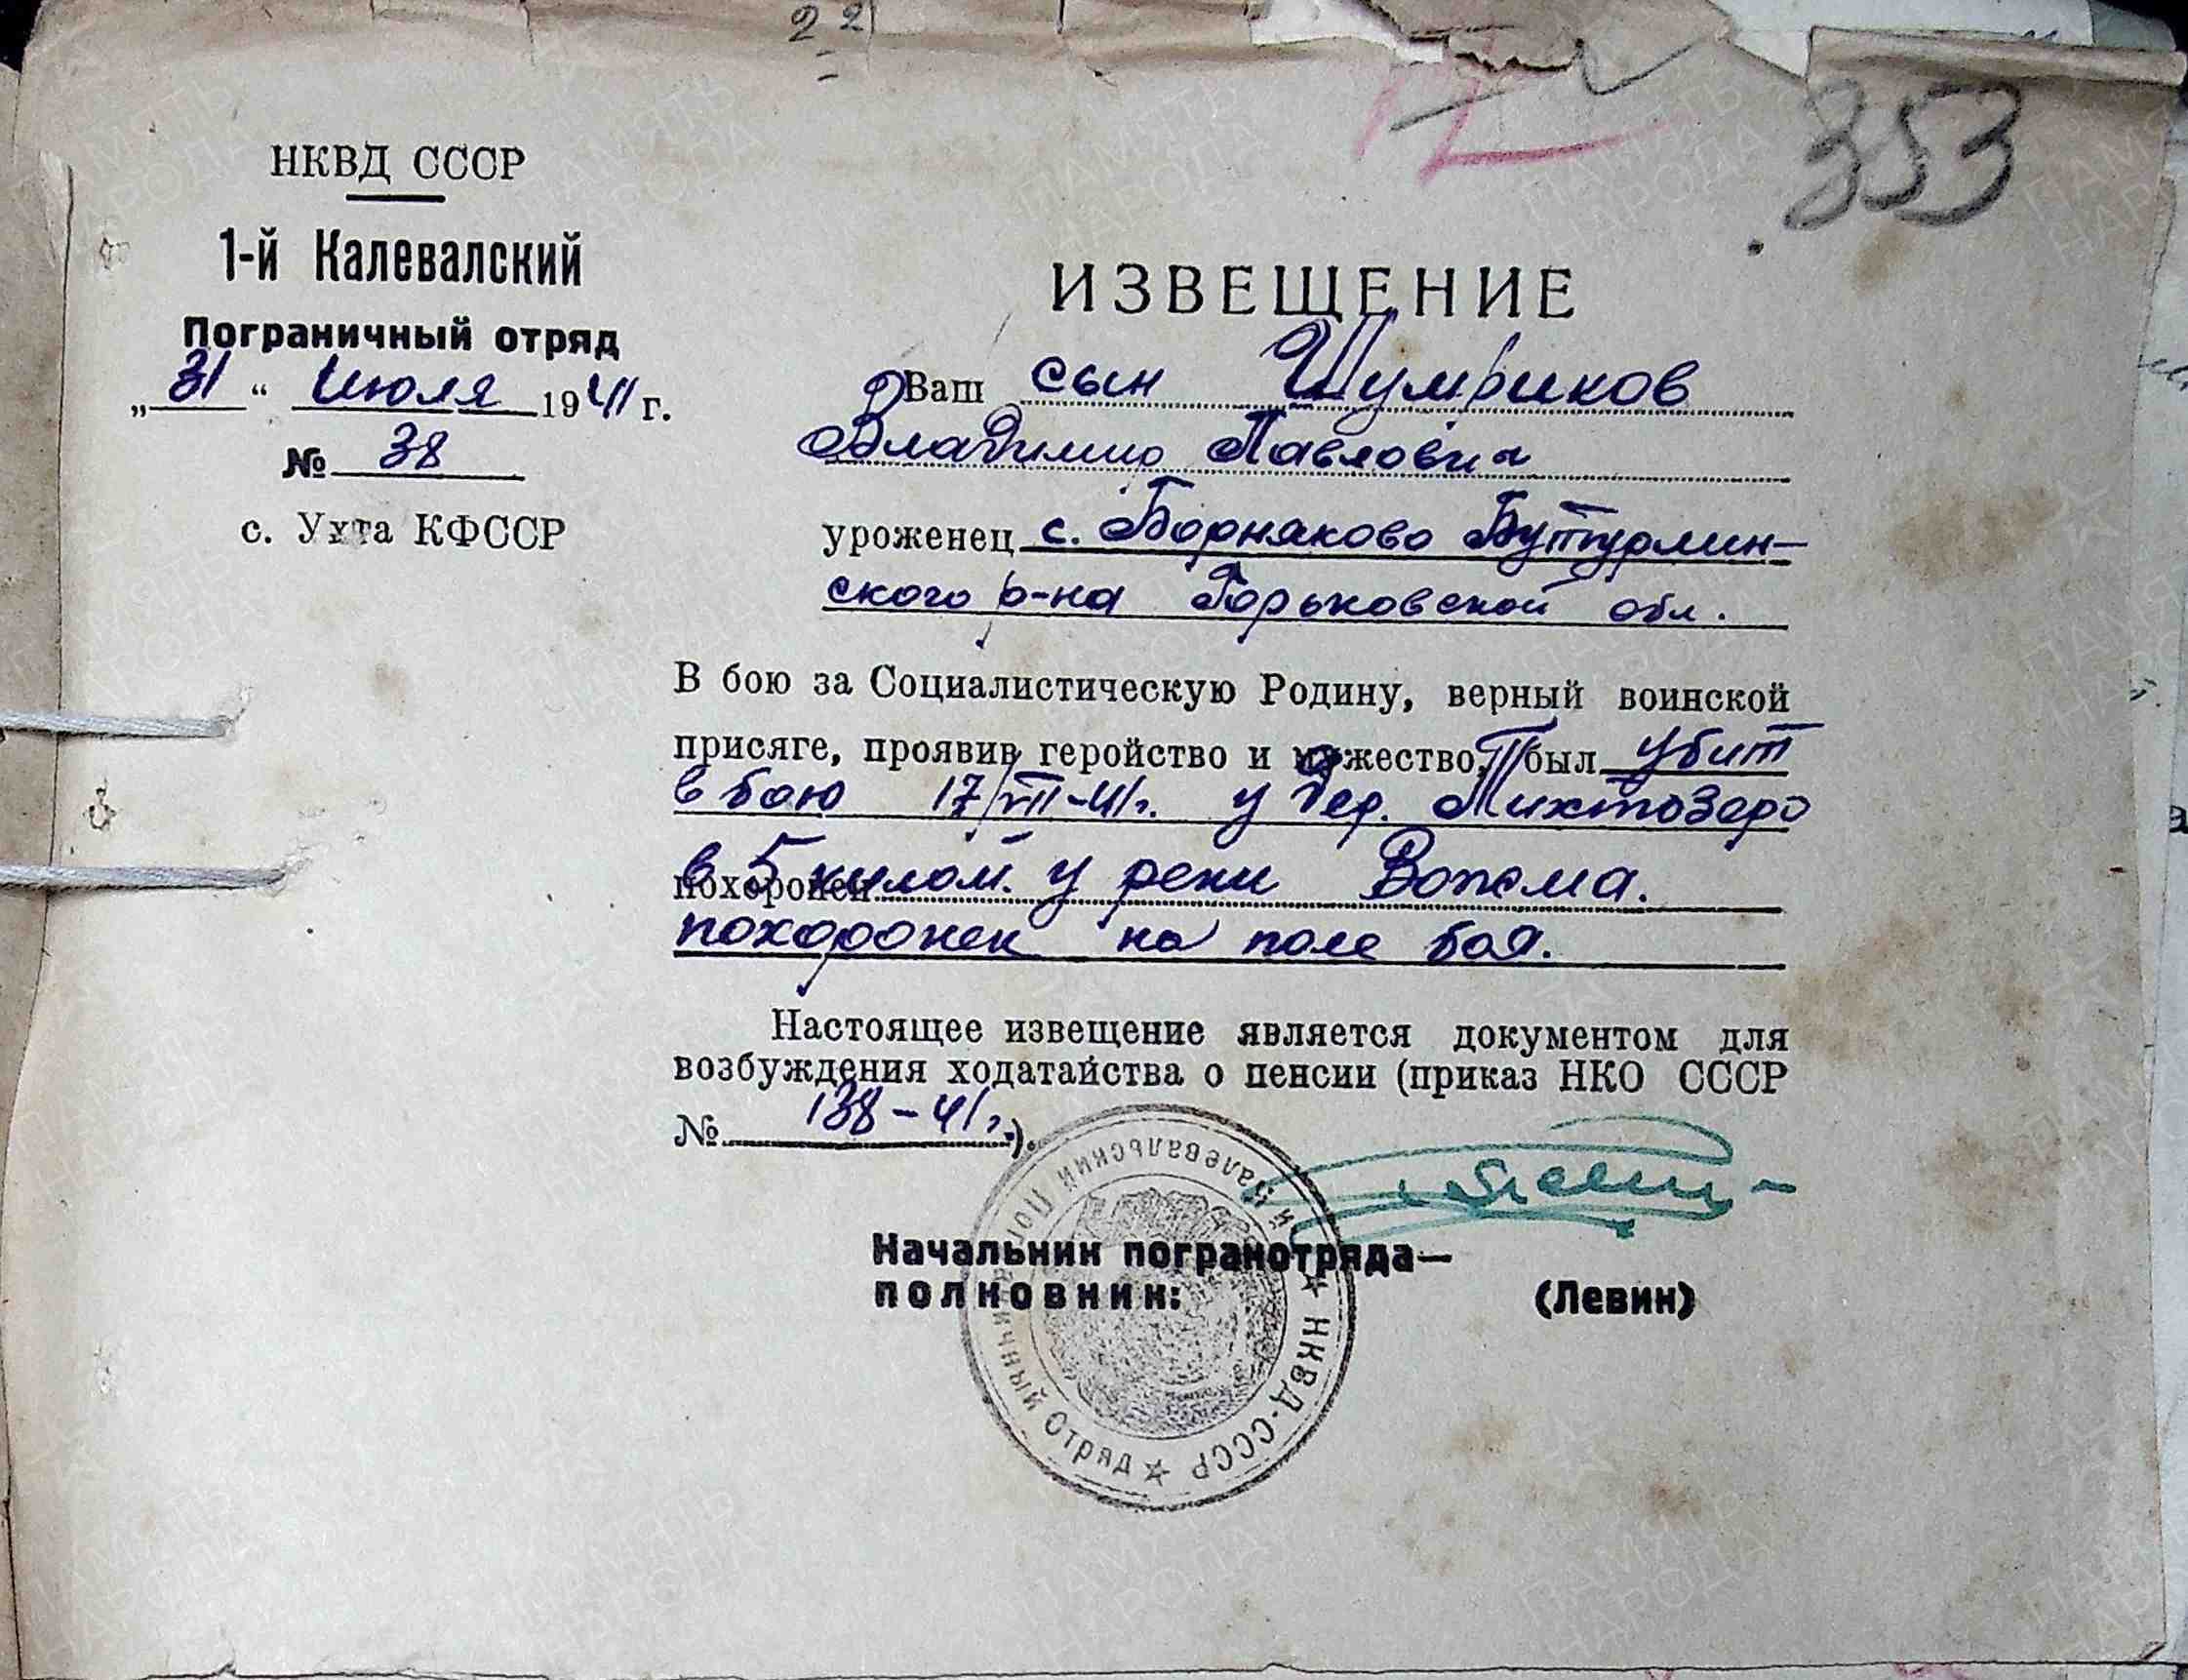 22
353
НКВД СССР
1-й Калевалский
Пограничный отряд
„31“ Июля 1941 г.
№ 38
с. Ухта КФССР
ИЗВЕЩЕНИЕ
Ваш сын Шумриков
Владимир Павлович
уроженец с. Борняково Бутурлин-
ского р-на Горьковской обл.
В бою за Социалистическую Родину, верный воинской
присяге, проявив геройство и мужество, был убит
в бою 17/VII-41г. у дер.
похоронен в 5 килом. у реки
похоронен на поле боя.
Настоящее извещение является документом для
возбуждения ходатайства о пенсии (приказ НКО СССР
№ 138-41г.).
Начальник погранотряда—
полковник:
(Левин)
НКВД-СССР ★ й Калевальский Пограничный Отряд ★
ПАМЯТЬ НАРОДА